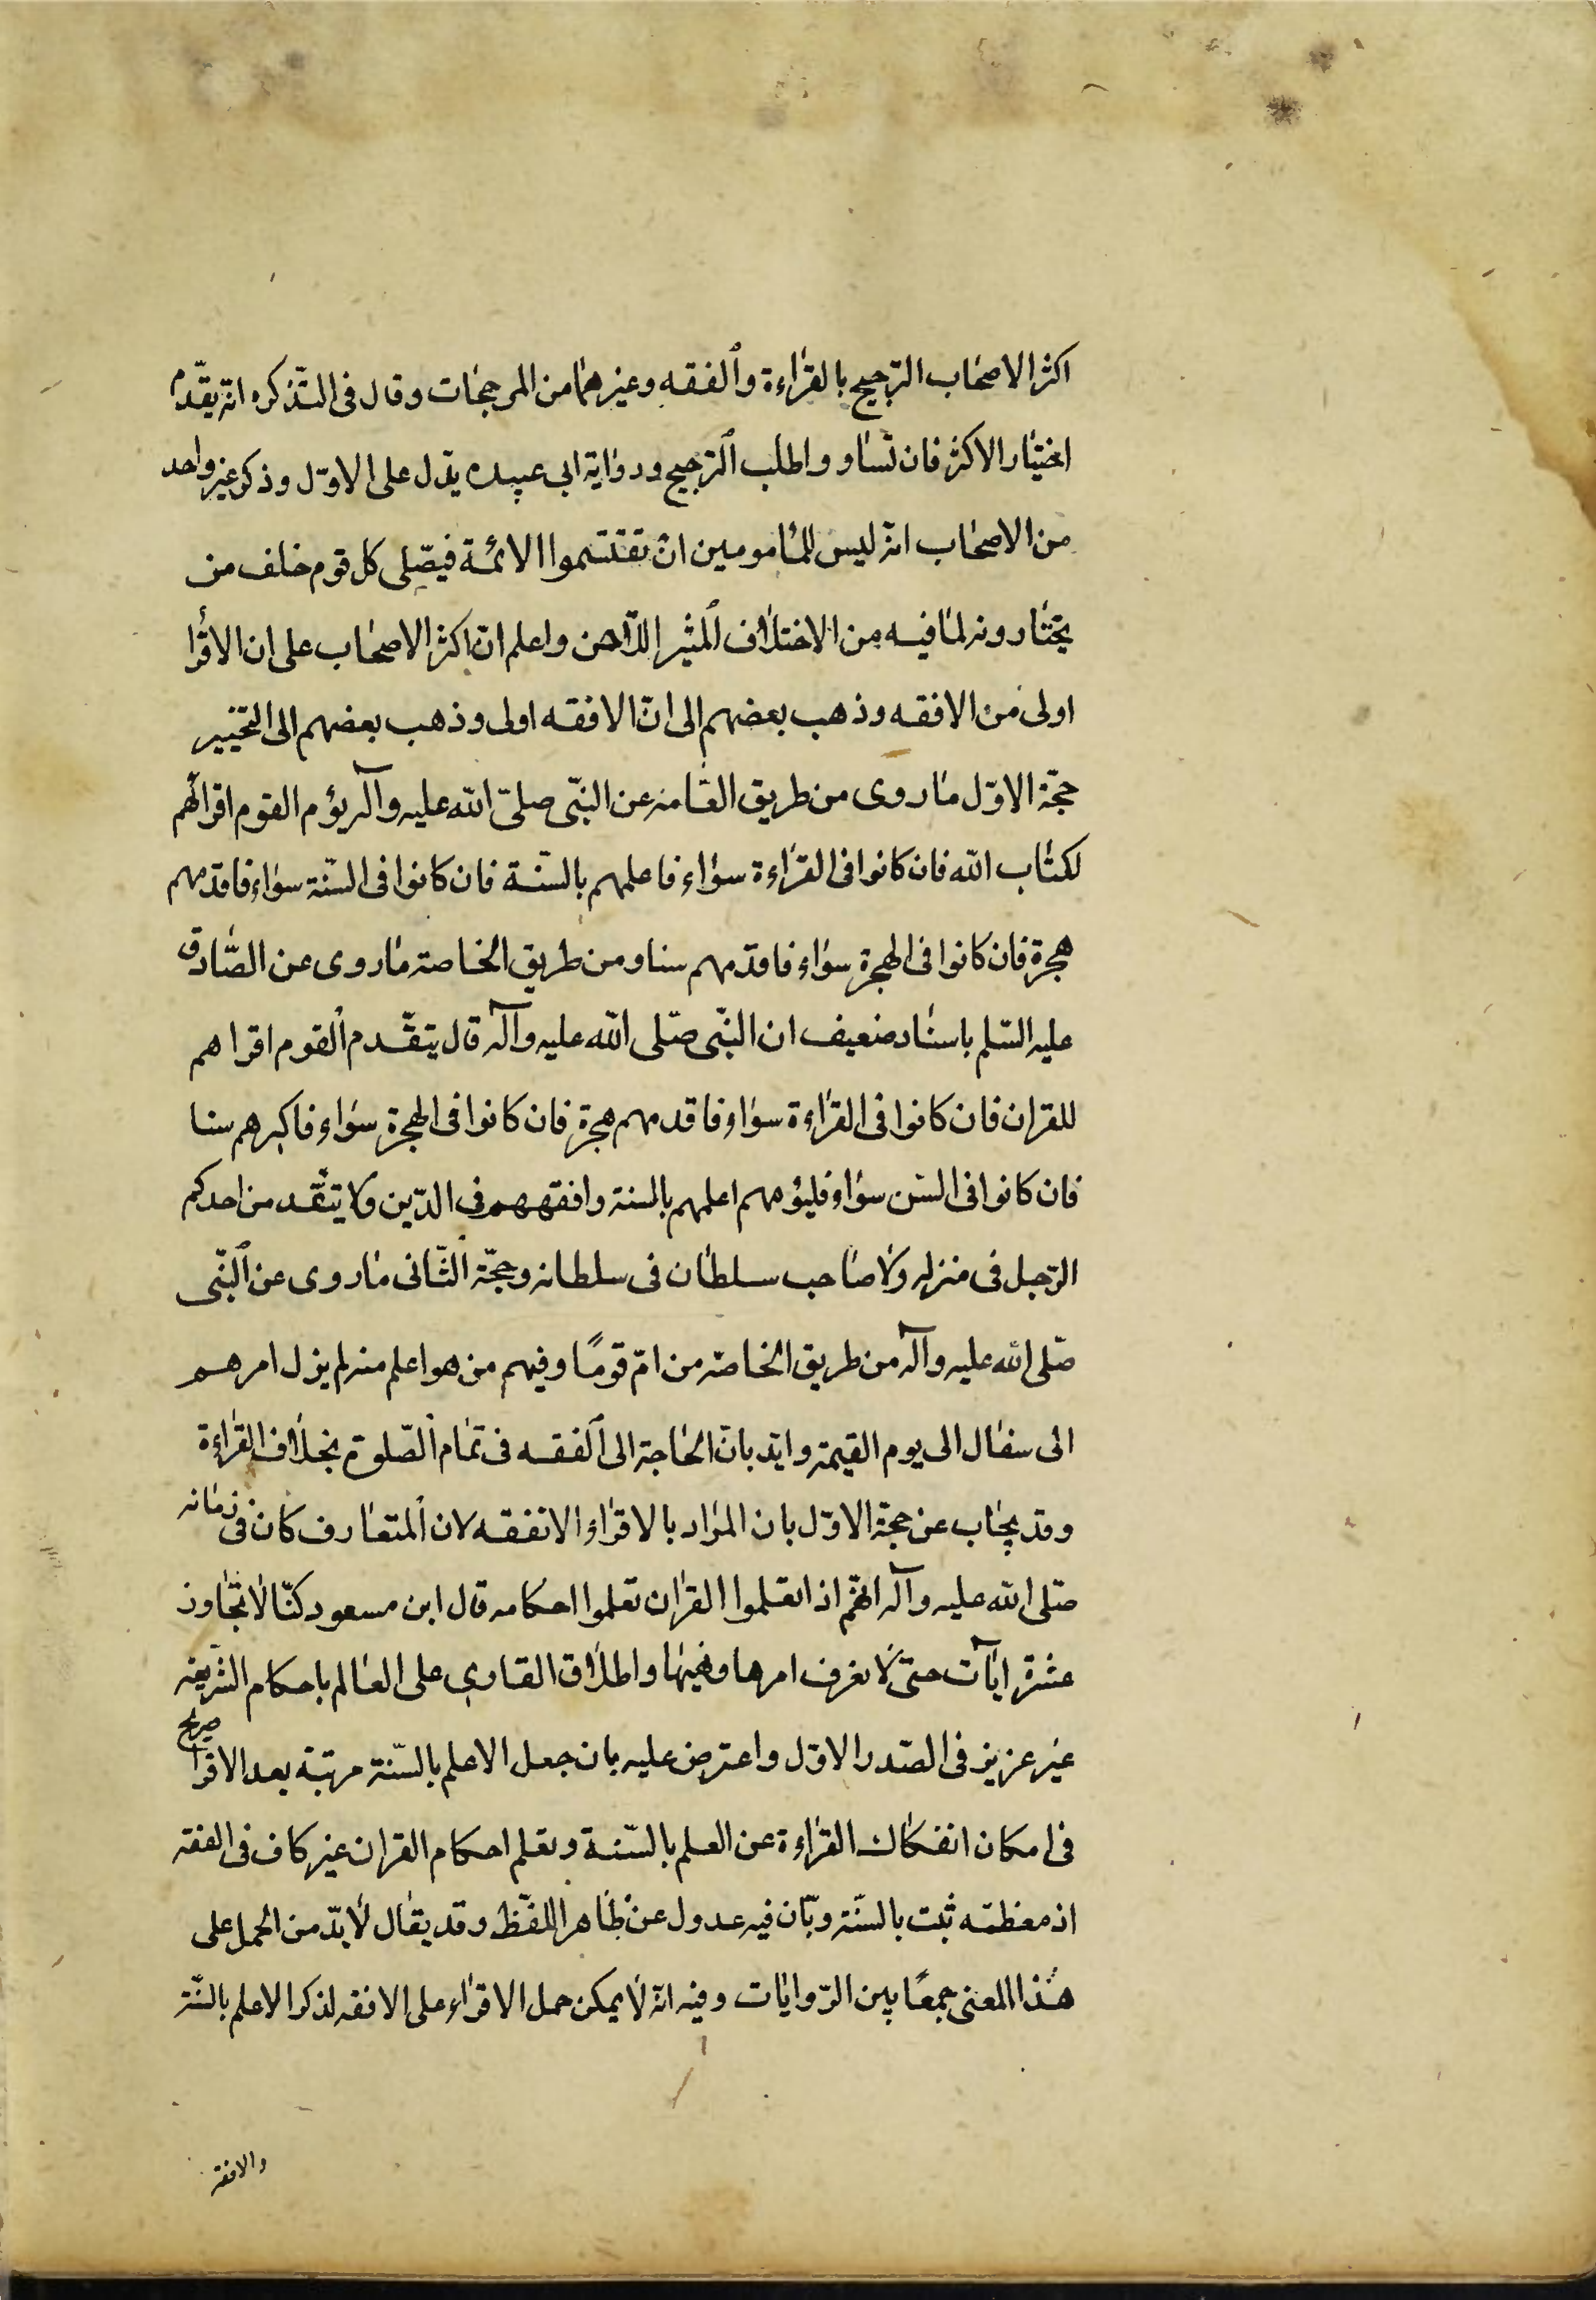 اكثر الاصحاب الترجيح بالقراءة والفقه وغيرهما من المرجحات وقال في التذكره انه يقدم
اختيار الاكثر فان تساووا طلب الترجيح ورواية ابى عبيده يدل على الاول وذكر غير واحد
من الاصحاب انه ليس للمامومين ان تقتسموا الائمة فيصلى كل قوم خلف من
يختارونه لما فيه من الاختلاف المثير للاحن واعلم ان اكثر الاصحاب على ان الاقرأ
اولى من الافقه وذهب بعضهم الى انّ الافقه اولى وذهب بعضهم الى التخيير
حجّة الاوّل ما روى من طريق العامه عن النبّى صلىّ الله عليه وآله يؤم القوم اقرائهم
لكتاب الله فان كانوا فى القراءة سواء فاعلمهم بالسنّة فان كانوا فى السنّة سواء فاقدمهم
هجرة فان كانوا فى الهجرة سواء فاقدمهم سنا ومن طريق الخاصة ما روى عن الصّادق
عليه السّلم باسناد ضعيف ان النبّى صلى الله عليه وآله قال يتقدم القوم اقراهم
للقران فان كانوا فى القراءة سواء فاقدمهم هجرة فان كانوا فى الهجرة سواء فاكبرهم سنا
فان كانوا فى السّن سواء فليؤمهم اعلمهم بالسنة وافقههم فى الدّين ولا يتقدمن احدكم
الرّجل فى منزله ولا صاحب سلطان فى سلطانه وحجّة الثّانى ما روى عن النبّى
صلى الله عليه وآله من طريق الخاصّه من امّ قومًا وفيهم من هو اعلم منه لم يزل امرهم
الى سفال الى يوم القيمة وايد بانّ الحاجة الى الفقه فى تمام الصّلوة بخلاف القراءة
وقد يجاب عن حجّة الاوّل بان المراد بالاقراء الاتفقه لان المتعارف كان فى زمانه
صلى الله عليه وآله انهّم اذا تعلموا القران تعلموا احكامه قال ابن مسعود كنّا لا نتجاوز
عشرة ايآت حتىّ لا نعرف امرها ونهيها واطلاق القارى على العالم باحكام الشريعه
غير عزيز فى الصّدر الاوّل واعترض عليه بان جعل الاعلم بالسّنة مرتبة بعد الاقرا صريح
فى امكان انفكاك القراءة عن العلم بالسّنة وتعلم احكام القران غير كاف فى الفقه
اذ معظمه ثبت بالسنّة وبّان فيه عدول عن ظاهر اللفظ وقد يقال لا بدّ من الحمل على
هذا المعنى جمعًا بين الرّوايات وفيه انّه لا يمكن حمل الاقراء على الافقه لذكر الاعلم بالسنّة
والافقه